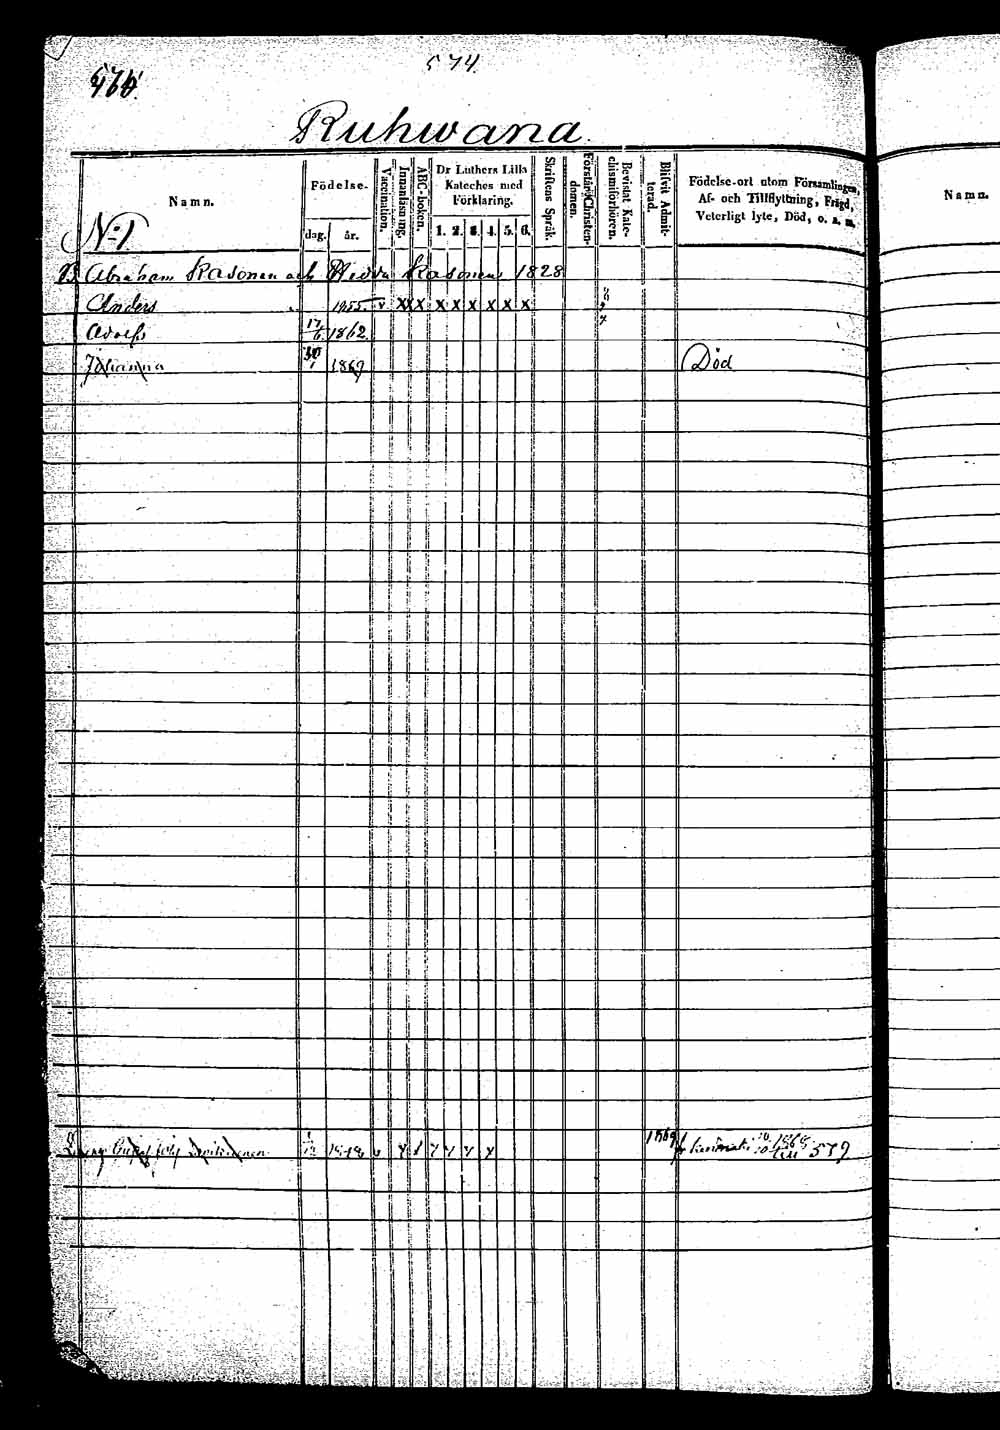 574.
Ruhwana.
Namn.
Födelse-
dag.
år.
Vaccination.
Innanläsning.
ABC-boken.
Dr Luthers Lilla
Kateches med
Förklaring.
1. 2. 3. 4. 5. 6.
Skriftens Språk.
Förstår Christen-
domen.
Bevistat Kate-
chismiförhören.
Blifvit Admit-
terad.
Födelse-ort utom Församlingen,
Af- och Tillflyttning, Frägd,
Veterligt lyte, Död, o. s. m.
Namn.
No 1
B. Abraham Kasonen och Hedda Kasonen 1828
Anders 1855 v x x x x x x x x x
Adolf 17/6 1862
Johanna 1867 Död
1869 till 579